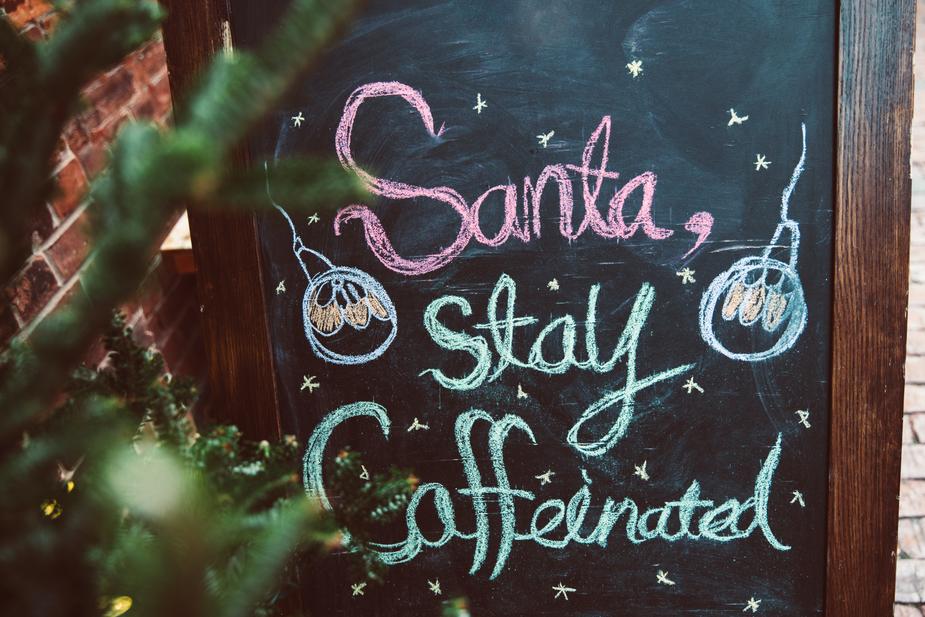 Santa,
stay
Caffeinated